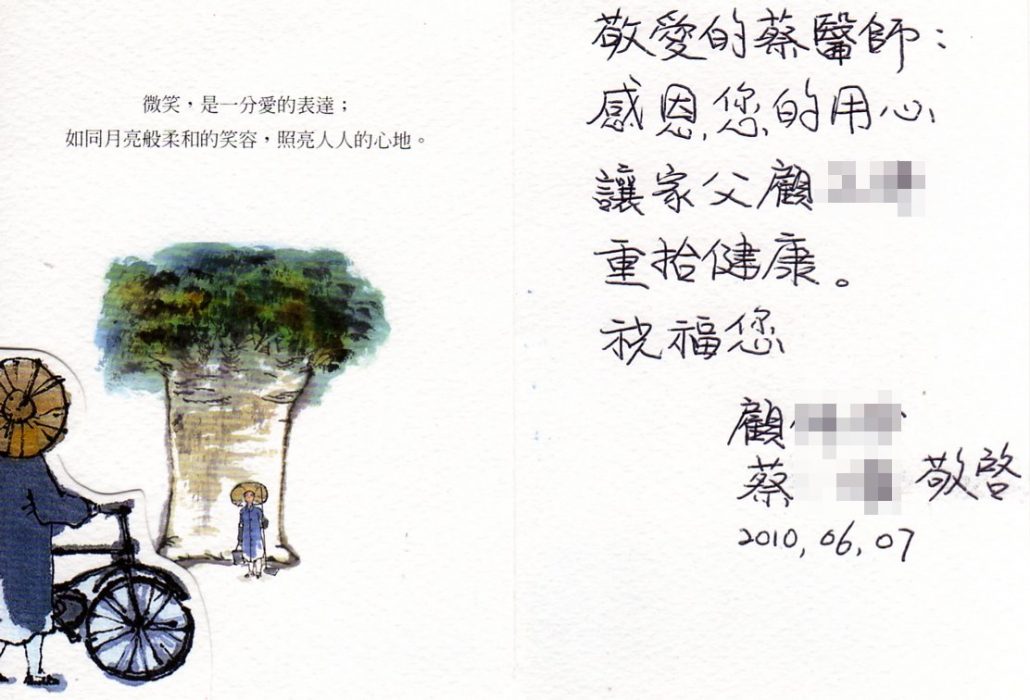 微笑，是一分愛的表達；
如同月亮般柔和的笑容，照亮人人的心地。
敬愛的蔡醫師：
感恩您的用心
讓家父顧
重拾健康。
祝福您
顧
蔡 敬啓
2010.06.07